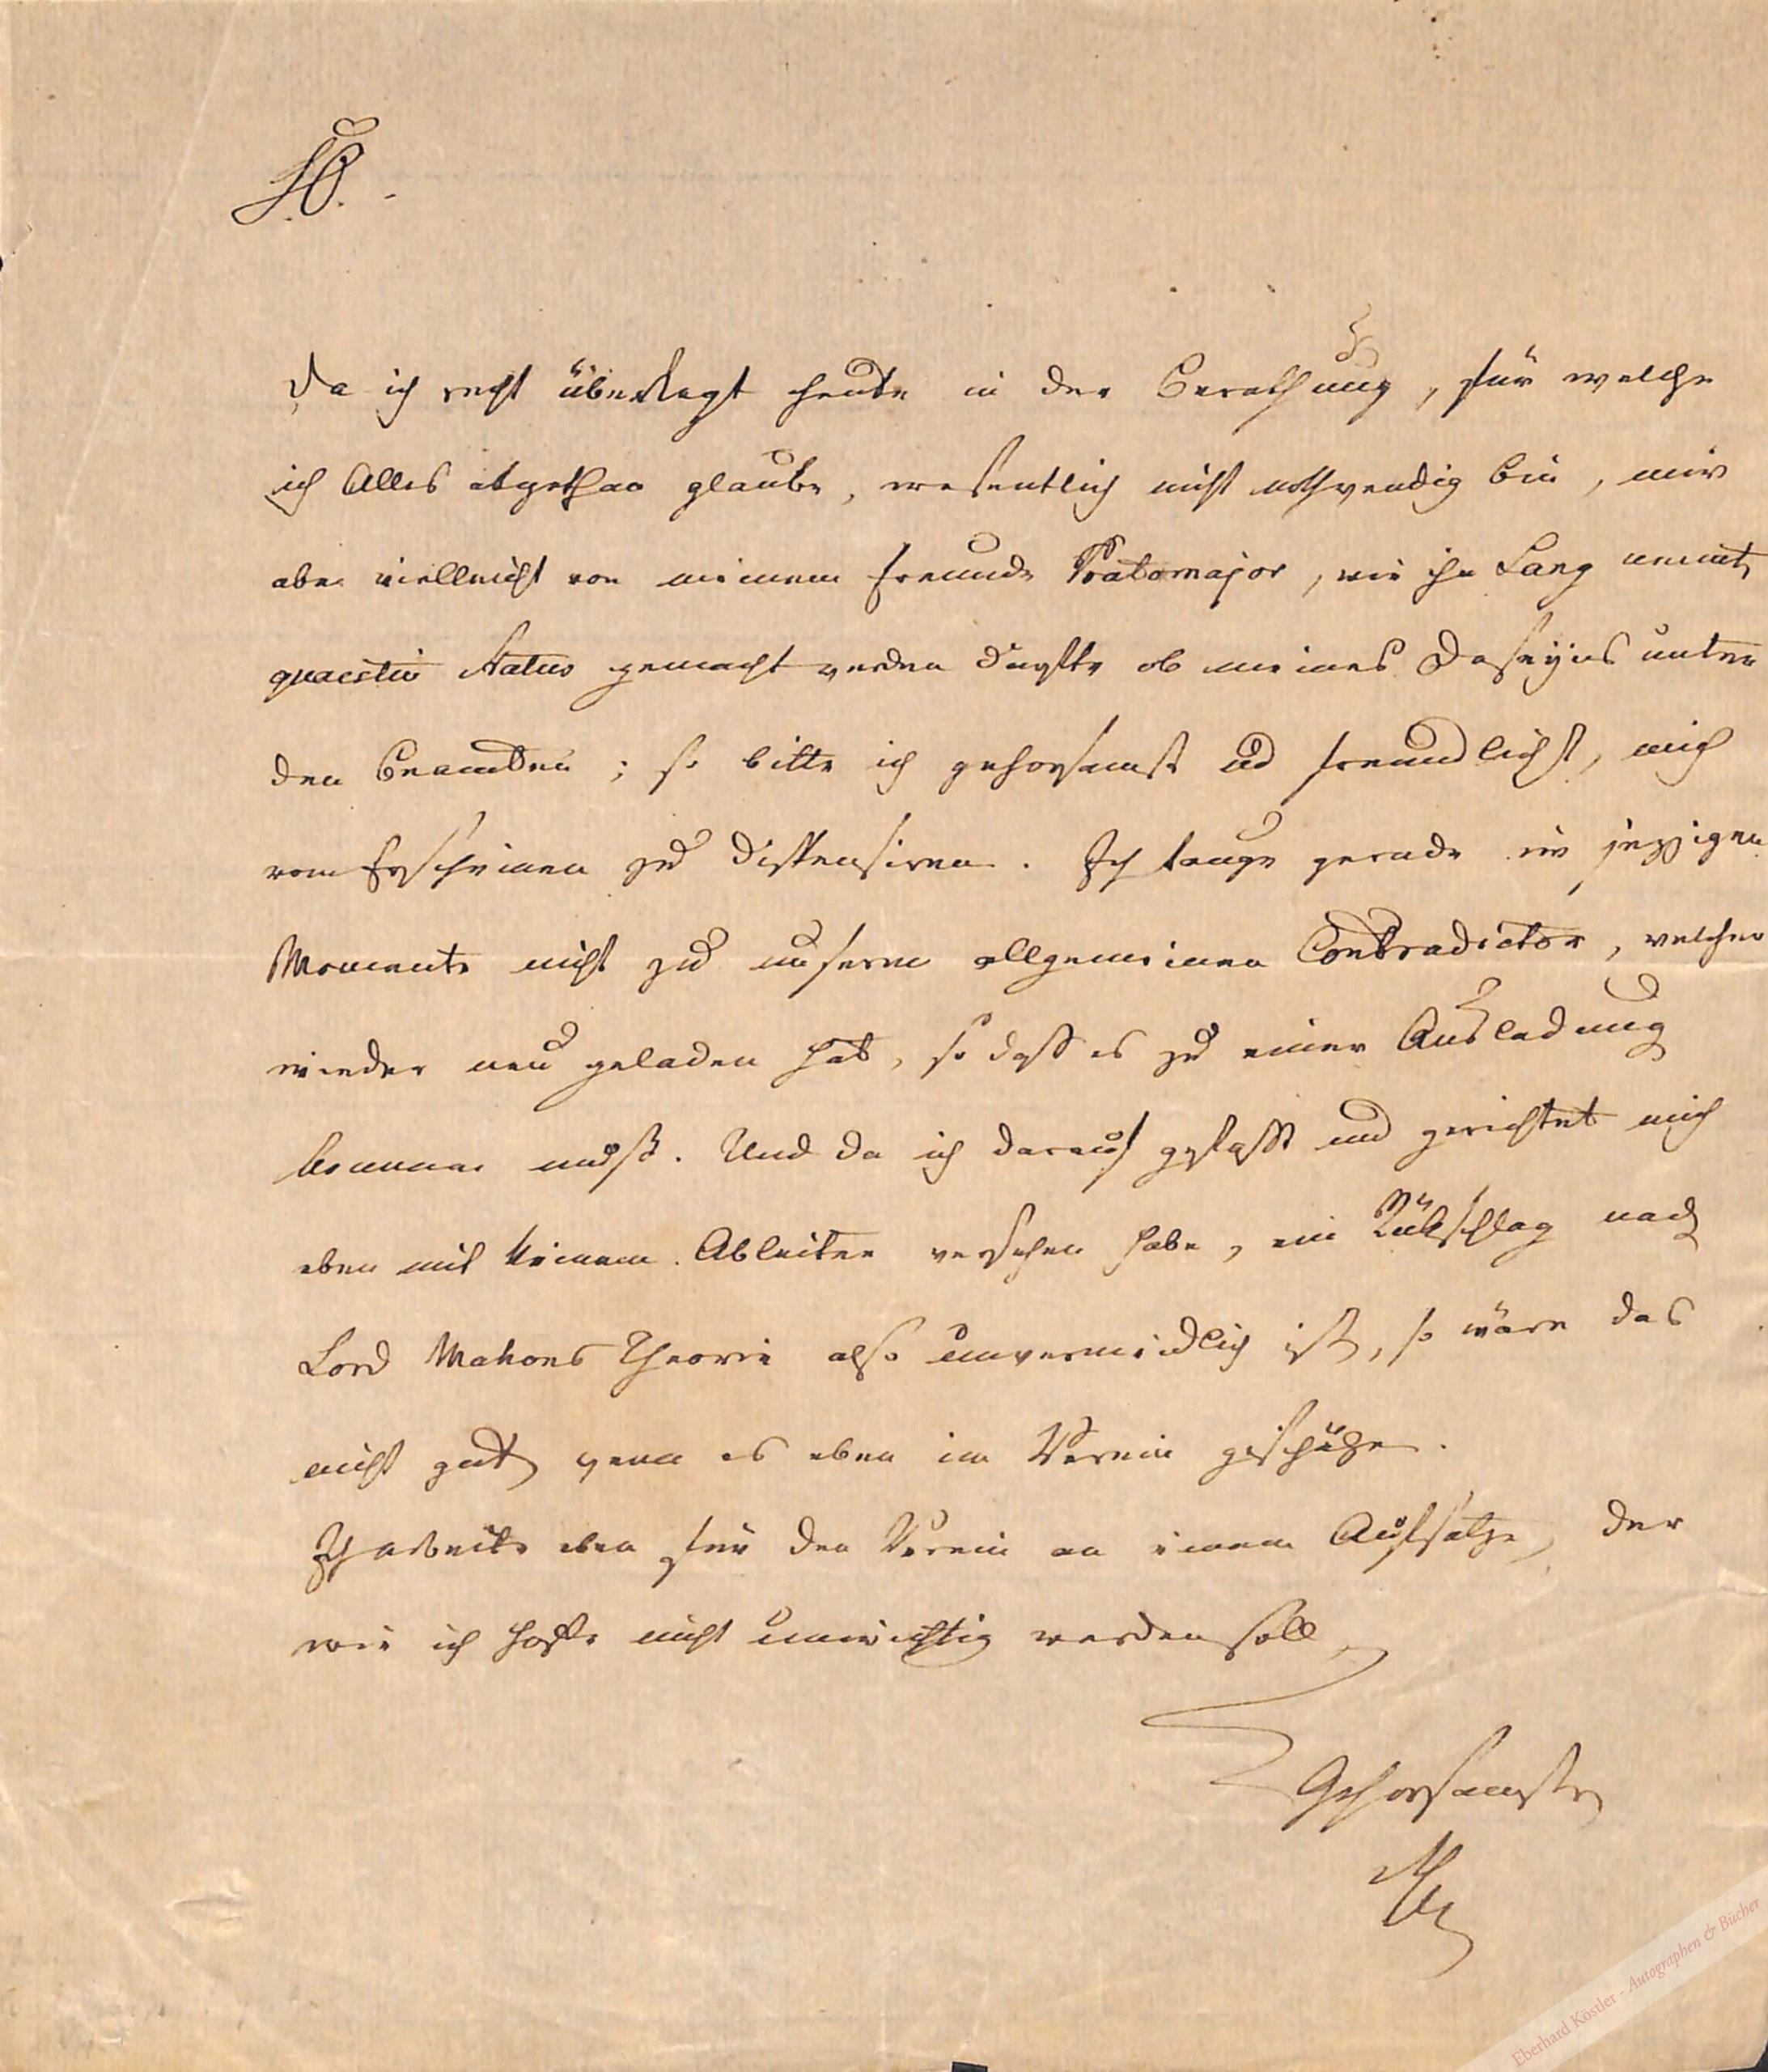 Da ich recht überlegt heute in der Berathung, für welche
ich Alles abgethan glaube, wesentlich nicht nothwendig bin, mir
aber vielleicht von meinem Freunde Pratomajor, wie ihn Lang nennt,
quaestio status gemacht werden dürfte ob meines Daseyns unter
den Beamten; so bitte ich gehorsamst und freundlichst, mich
vom Erscheinen zu dispensiren. Ich tauge gerade im jezzigen
Momente nicht zu unserm allgemeinen Contradictor, welcher
wieder neu geladen hat, so daß es zu einer Ausladung
kommen muß. Und da ich darauf gefaßt und gerichtet mich
eben mit keinem Ableiter versehen habe, ein Rükschlag nach
Lord Mahons Theorie also unvermeidlich ist, so wäre das
nicht gut, wenn es eben im Verein geschähe.
Ich arbeite eben für den Verein an einem Aufsatze, der
wie ich hoffe nicht unwichtig werden soll.
Gehorsamster
Eberhard Köstler - Autographen & Bücher